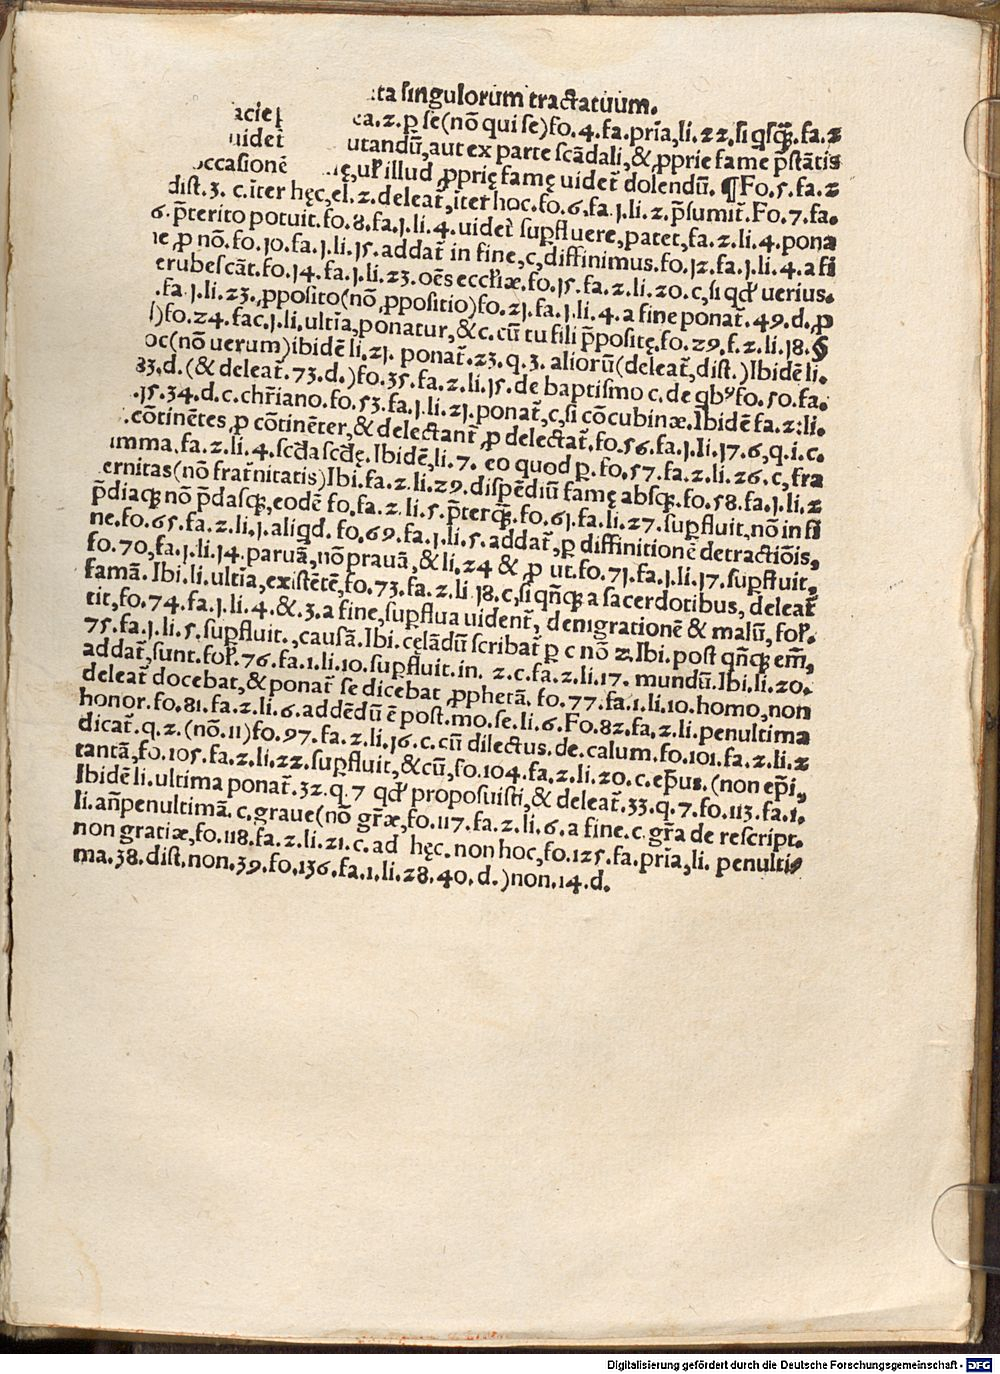 :ta singulorum tractatuum.
acie ca.2.p̱ se(nõ qui se)fo.4.fa.pria̅,li.22.si q̃sq̃ꝫ.fa.2
uidet̃ utandũ,aut ex parte scãdali,& ꝓprie fame p̃stãtis
occasionẽ ę,uł illud ꝓprię famę uidet̃ dolendũ. ¶Fo.5.fa.2
dist.3. c.iter̃ hęc,el.2.deleat̃,iter̃ hoc.fo.6.fa.j.li.2.p̃sumit̃.Fo.7.fa.
6.p̃terito potuit.fo.8.fa.j.li.4.uidet̃ suꝑfluere,patet,fa.2.li.4.pona
ꝓ nõ.fo.10.fa.j.li.15.addat̃ in fine,c,diffinimus.fo.12.fa.j.li.4.a fi
erubescãt.fo.14.fa.j.li.23.oẽs eccl'iæ.fo.15.fa.2.li.20.c,si qd' uerius.
.fa.j.li.23.ꝓposito(nõ ꝓpositio)fo.21.fa.j.li.4.a fine ponat̃.49.d.ꝓ
)fo.24.fac.j.li.ultia̅,ponatur,&c.cũ tu fili p̃positę.fo.29.f.2.li.18.§
oc(nõ uerum)ibidẽ li.21. ponat̃.23.q.3. aliorũ(deleat̃,dist.)Ibidẽ li.
83.d.(& deleat̃.73.d.)fo.35.fa.2.li.15.de baptismo c.de qbꝰ fo.50.fa.
.15.34.d.c.chr̃iano.fo.53.fa.j.li.21.ponat̃,c,si cõcubinæ.Ibidẽ fa.2:li.
.cõtinẽtes,ꝓ cõtinẽter,& delectant̃ ꝓ delectat̃.fo.56.fa.j.li.17.6,q.i.c.
imma.fa.2.li.4.scd̃a scd̃ę.Ibidẽ,li.7. eo quod ꝑ. fo.57.fa.2.li.26.c,fra
ernitas(nõ frat̃nitatis)Ibi.fa.2.li.29.dispẽdiũ famę absqꝫ.fo.58.fa.j.li.2
p̃diaqꝫ nõ p̃dasqꝫ,eodẽ fo,fa.2.li.5.p̃terq̃ꝫ.fo.61.fa.li.27.suꝑfluit,nõ in fi
ne.fo.65.fa.2.li.j.aliqd.fo.69.fa.j.li.5.addat̃,ꝑ diffinitionẽ detractiõis,
fo.70,fa.j.li.14.paruã,nõ prauã,& li.24 & ꝓ ut.fo.71.fa.j.li.17.suꝑfluit,
famã.Ibi.li.ultia̅,existẽtẽ,fo.73.fa.2.li.18.c,si qñqꝫ a sacerdotibus, deleat̃
tit,fo.74.fa.j.li.4.&.3.a fine,suꝑflua uident̃, denigrationẽ & malũ,foł.
75.fa.j.li.5.suꝑfluit.,causã.Ibi.celãdũ scribat̃ ꝑ c nõ z.Ibi.post qñqꝫ em̃,
addat̃,sunt.foł.76.fa.1.li.10.suꝑfluit.in. 2.c.fa.2.li.17. mundũ.Ibi.li.20.
deleat̃ docebat,& ponat̃ se dicebat ꝓphetã. fo.77.fa.1.li.10.homo,non
honor.fo.81.fa.2.li.6.addẽdũ ẽ post.mo.se.li.6.Fo.82.fa,2.li.penultima
dicat̃.q.2.(nõ.11)fo.97.fa.2.li.16.c.cũ dilectus.de.calum.fo.101.fa.2.li.2
tantã,fo.105.fa.2.li.22.suꝑfluit,&cũ,fo.104.fa.2.li.20.c.ep̃us.(non ep̃i,
Ibidẽ li.ultima ponat̃.32.q.7 qd' proposuisti,& deleat̃.33.q.7.fo.113.fa.1.
li.añpenultimã.c.graue(nõ gr̃æ,fo.117.fa.2.li.6.a fine.c.gr̃a de rescript.
non gratiæ,fo.118.fa.2.li.21.c.ad hęc.non hoc,fo.125.fa.pria̅,li. penulti
ma.38.dist.non.39.fo.136.fa.1.li.28.40.d.)non.14.d.
Digitalisierung gefördert durch die Deutsche Forschungsgemeinschaft - DFG